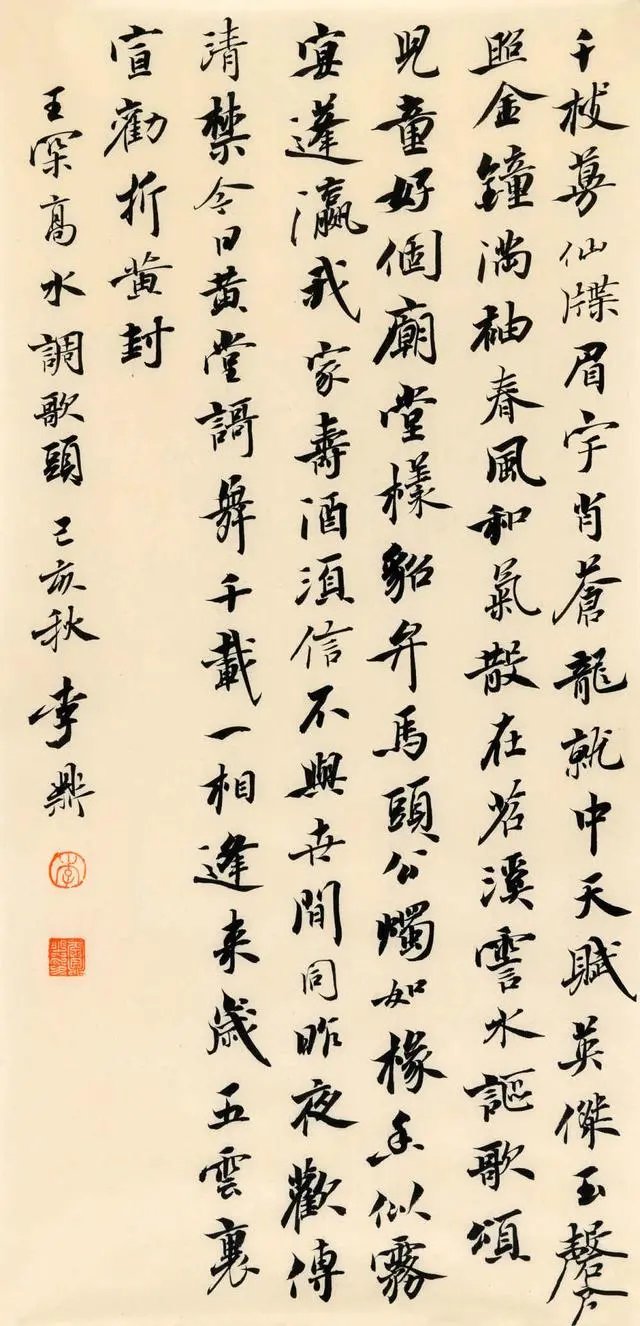 千枝蓂仙牒眉宇肖蒼龍就中天賦英傑玉磬
照金鐘満袖春風和氣散在苕溪霅水謳歌頌
兒童好個廟堂樣貂弁馬頭公燭如椽香似霧
宴蓬瀛我家壽酒須信不與世間同昨夜歡傳
清禁今日黄堂謌舞千載一相逢来歲五雲裏
宣勸折黄封
王深髙水調歌頭己亥秋李鼎
李